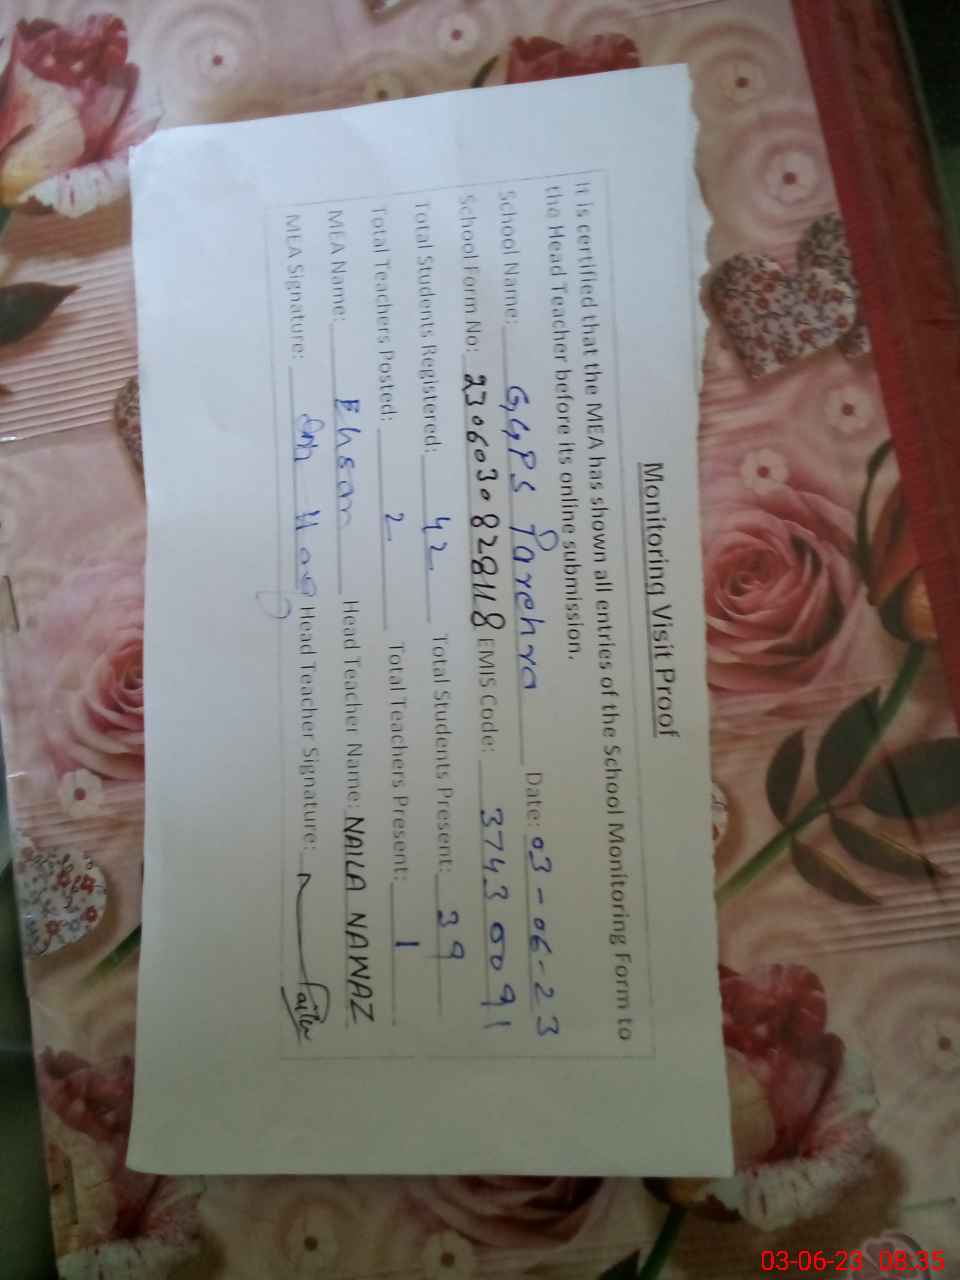 Monitoring Visit Proof
It is certified that the MEA has shown all entries of the School Monitoring Form to
the Head Teacher before its online submission.
School Name: GGPS Parehra Date: 03-06-23
School Form No: 2306030828118 EMIS Code: 37430091
Total Students Registered: 42 Total Students Present: 39
Total Teachers Posted: 2 Total Teachers Present: 1
MEA Name: Ehsan Head Teacher Name: NAILA NAWAZ
MEA Signature: Head Teacher Signature:
03-06-23 08:35